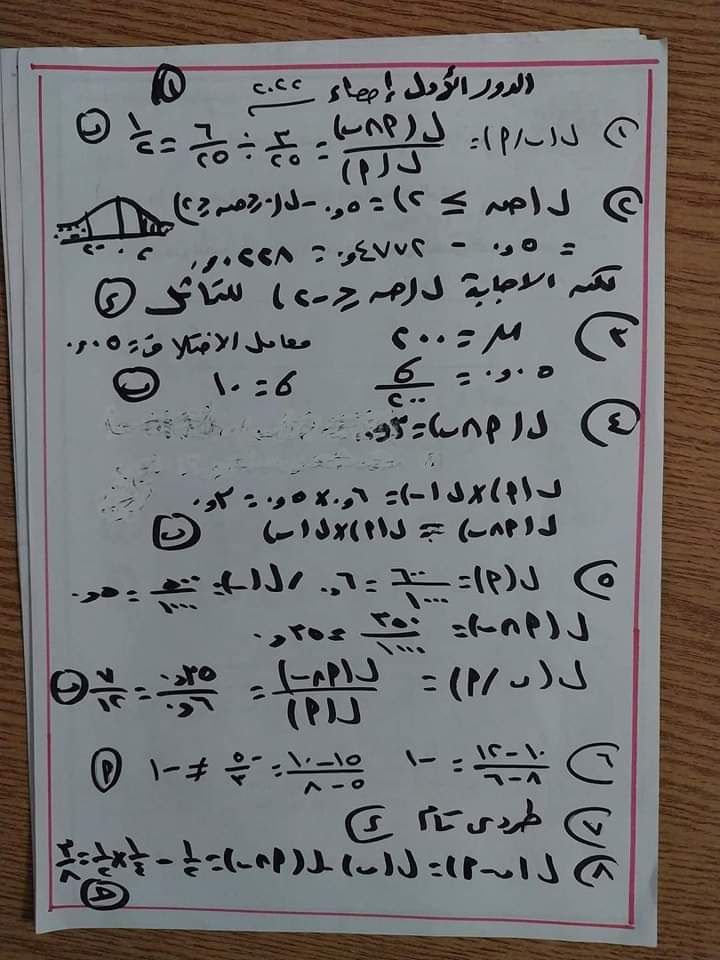 ١
الدور الأول إحصاء ٢٠٢٢
١) ل(ب/P) = ل(P∩ب) / ل(P) = ٣/٢٥ ÷ ٦/٢٥ = ١/٢ ب
٢) ل(ص ≥ ٢) = ٠٫٥ - ل(٠ ≤ ص ≤ ٢)
= ٠٫٥ - ٠٫٤٧٧٢ = ٠٫٠٢٢٨
٢- ٠ ٢
لكنه الاجابة ل(ص ≤ -٢) للتماثل
٣) μ = ٢٠٠ معامل الاختلاف = ٠٫٠٥
٠٫٠٥ = σ/٢٠٠ σ = ١٠ ب
٤) ل(P∩ب) = ٠٫٣
ل(P) × ل(ب) = ٠٫٦ × ٠٫٥ = ٠٫٣
ل(P∩ب) = ل(P) × ل(ب) ب
٥) ل(P) = ٦٠٠/١٠٠٠ = ٠٫٦ ، ل(ب) = ٥٠٠/١٠٠٠ = ٠٫٥
ل(P∩ب) = ٣٥٠/١٠٠٠ = ٠٫٣٥
ل(ب/P) = ل(P∩ب) / ل(P) = ٠٫٣٥/٠٫٦ = ٧/١٢ ب
٦) ١٠-١٢ / ٨-٦ = -١ ١٥-١٠ / ٥-٨ = -٥/٣ ≠ -١ P
٧) طردى تام
٨) ل(ب-P) = ل(ب) - ل(P∩ب) = ١/٢ - ١/٤ × ١/٢ = ٣/٨